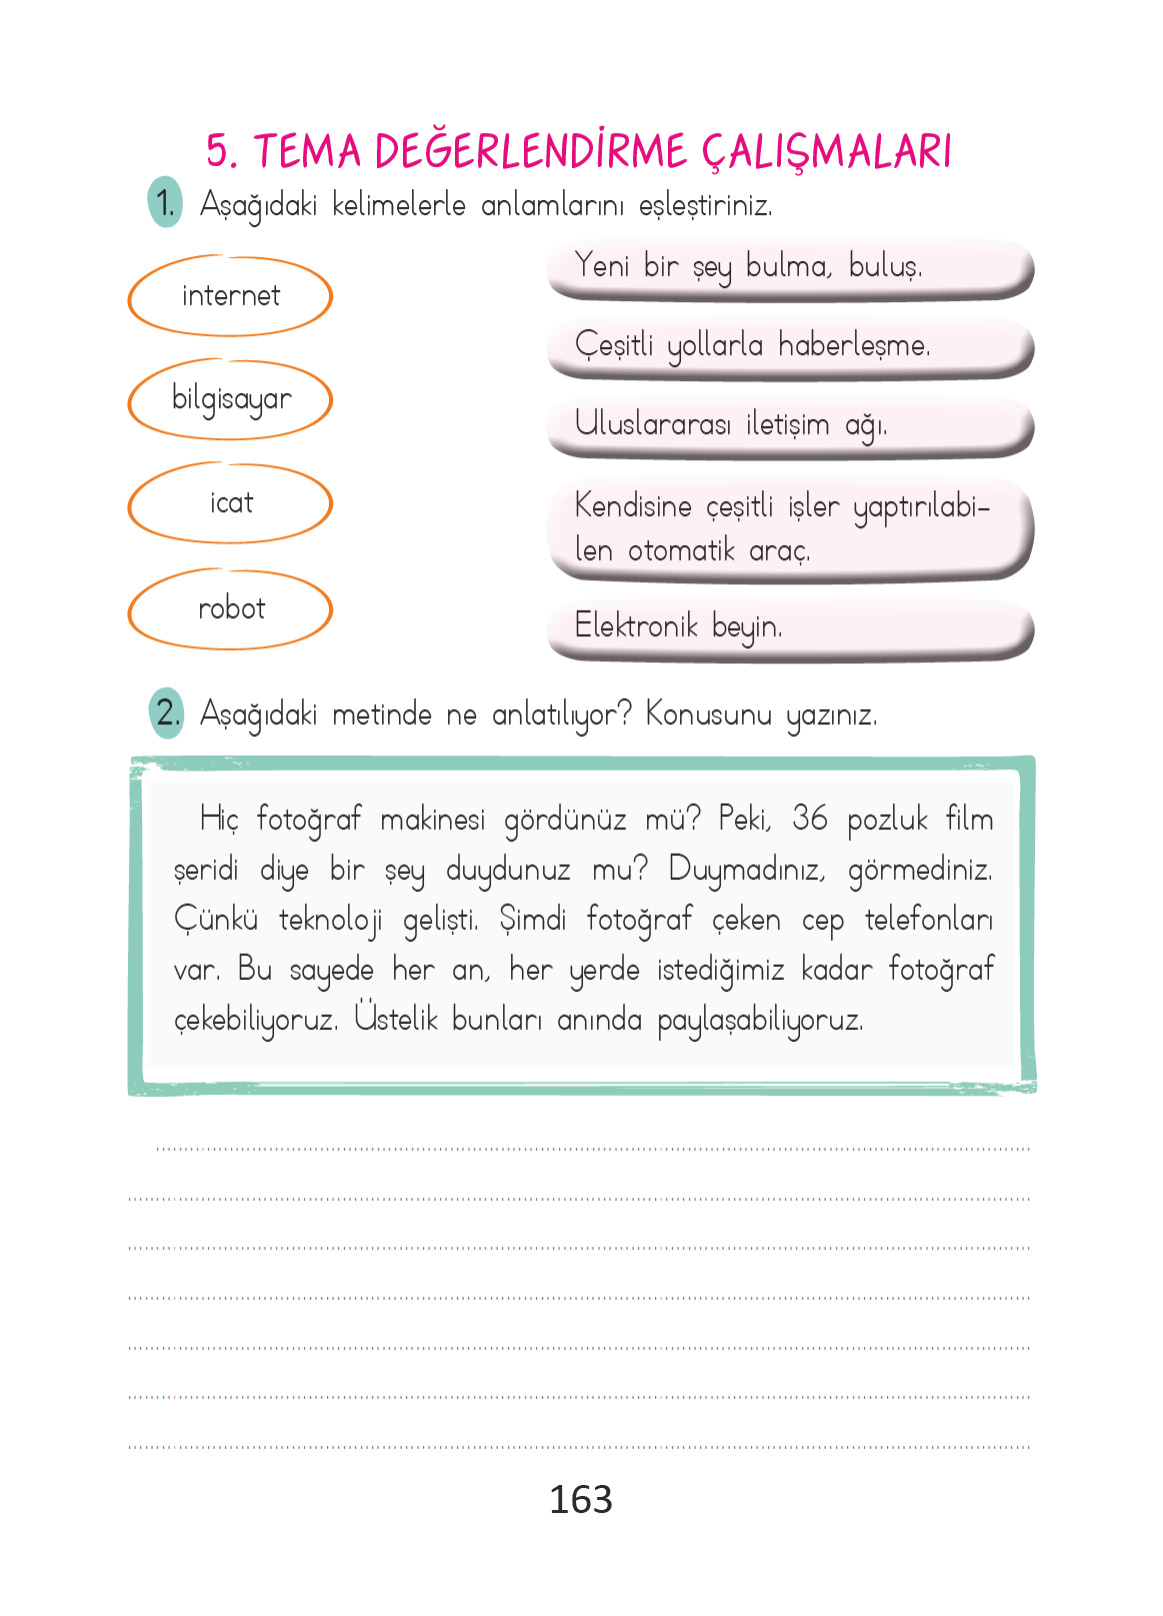 5. TEMA DEĞERLENDİRME ÇALIŞMALARI
1. Aşağıdaki kelimelerle anlamlarını eşleştiriniz.
internet
bilgisayar
icat
robot
Yeni bir şey bulma, buluş.
Çeşitli yollarla haberleşme.
Uluslararası iletişim ağı.
Kendisine çeşitli işler yaptırılabi-
len otomatik araç.
Elektronik beyin.
2. Aşağıdaki metinde ne anlatılıyor? Konusunu yazınız.
Hiç fotoğraf makinesi gördünüz mü? Peki, 36 pozluk film
şeridi diye bir şey duydunuz mu? Duymadınız, görmediniz.
Çünkü teknoloji gelişti. Şimdi fotoğraf çeken cep telefonları
var. Bu sayede her an, her yerde istediğimiz kadar fotoğraf
çekebiliyoruz. Üstelik bunları anında paylaşabiliyoruz.
163